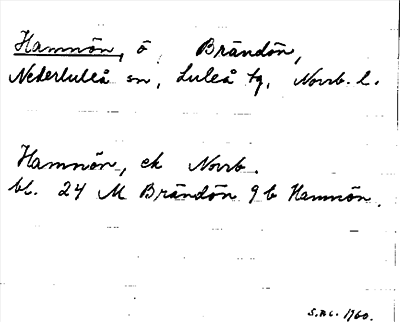 Hamnön, ö, Brändön,
Nederluleå sn, Luleå tg, Norrb. l.
Hamnön, ek Norrb.
bl. 24 M Brändön 9 b Hamnön.
S.n.c. 1760.